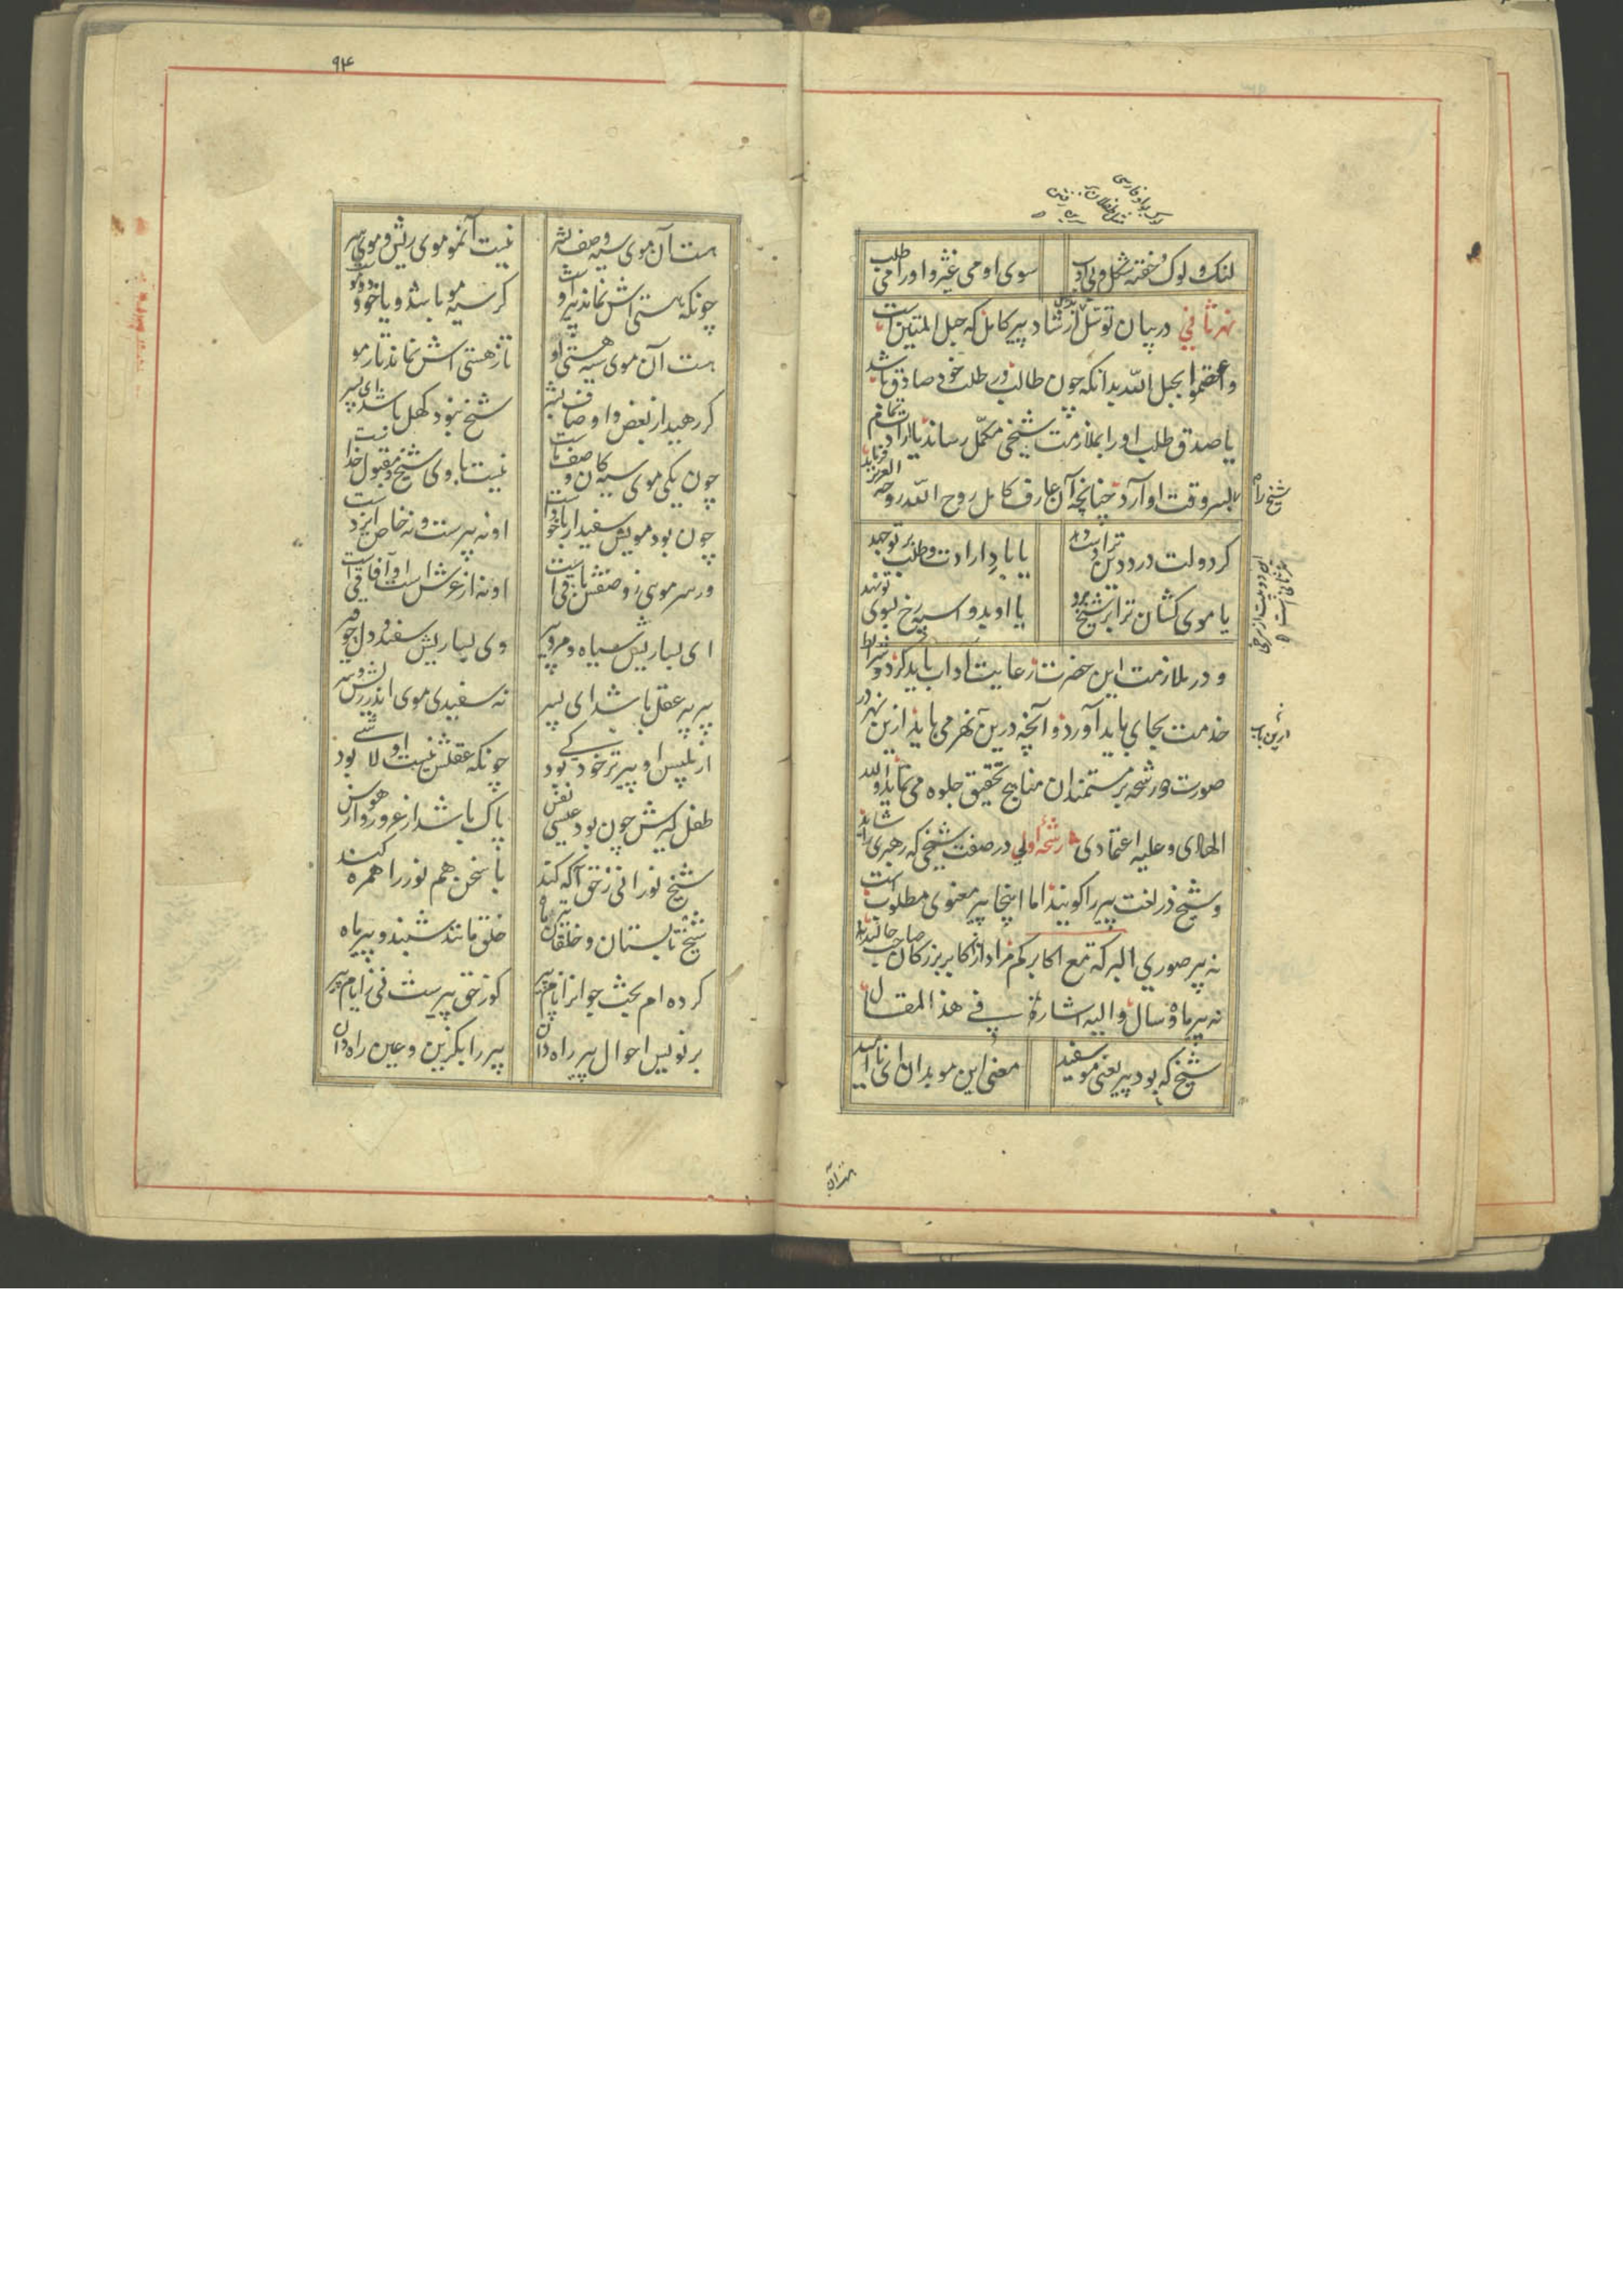 لنک و لوک و خفته شکل و بی ادب سوی او می غیژ و او را می طلب
نهر ثانی در بیان توسل بارشاد پیر کامل که حبل المتین است
واعتصموا بحبل الله بدانکه چون طالب در طلب خود صادق باشد
یا صدق طلب او را بملازمت شیخی مکمل رساند یا ارادت تمام
بسر وقت او آرد چنانچه آن عارف کامل روح الله روحه العزیز فرماید
کر دولت درد دین ترا دست دهد یا باد ارادت و طلب بر تو جهد
یا موی کشان ترا بر شیخ برد یا او بدو اسپه رخ بسوی تو نهد
و در ملازمت این حضرت رعایت آداب باید کرد و شرایط
خدمت بجای باید آورد و آنچه درین نهر می باید ازین نهر در
صورت دو رشحه بر مستمندان مناهج تحقیق جلوه می نماید والله
الهادی وعلیه اعتمادی رشحه اولی در صفت شیخی که رهبری را شاید
و شیخ در لغت پیر را کویند اما اینجا پیر معنوی مطلوب است
نه پیر صوری البرکة مع اکابرکم مراد از اکابر بزرکان صاحب حالند
نه پیر ماه و سال والیه اشارة فی هذا المقال
شیخ که بود پیر یعنی مو سفید معنی این مو بدان ای نا امید
هست آن
۹۴
هست آن موی سیه وصف بشر نیست آن مو موی ریش و موی سر
چونکه هستی اش نماند پیر اوست کر سیه مو باشد و یا خود دو موست
هست آن موی سیه هستی او تا ز هستی اش نماند تار مو
کر رهید از بعض و اوصاف بشر شیخ نبود کهل باشد ای پسر
چون یکی موی سیه کان وصف ماست نیست با وی شیخ و مقبول خدا نیست
چون بود مویش سفید ار با خودست او نه پیرست و نه خاص ایزدست
ور سر مویی ز وصفش باقی است او نه از عرش است او آفاقی است
ای بسا ریش سیاه و مرد پیر وی بسا ریش سفید و دل چو قیر
پیر پیر عقل باشد ای پسر نه سفیدی موی اندر ریش و سر
از بلیس او پیرتر خود کی بود چونکه عقلش نیست او لا شی بود
طفل کیرش چون بود عیسی نفس پاک باشد از غرور و از هوس
شیخ نورانی ز حق آکه کند با سخن هم نور را همره کند
شیخ تابستان و خلقان تیر ماه خلق مانند شبند و پیر ماه
کرده ام بخت جوانرا نام پیر کو ز حق پیرست نی ز ایام پیر
بر نویس احوال پیر راه دان پیر را بکزین و عین راه دان